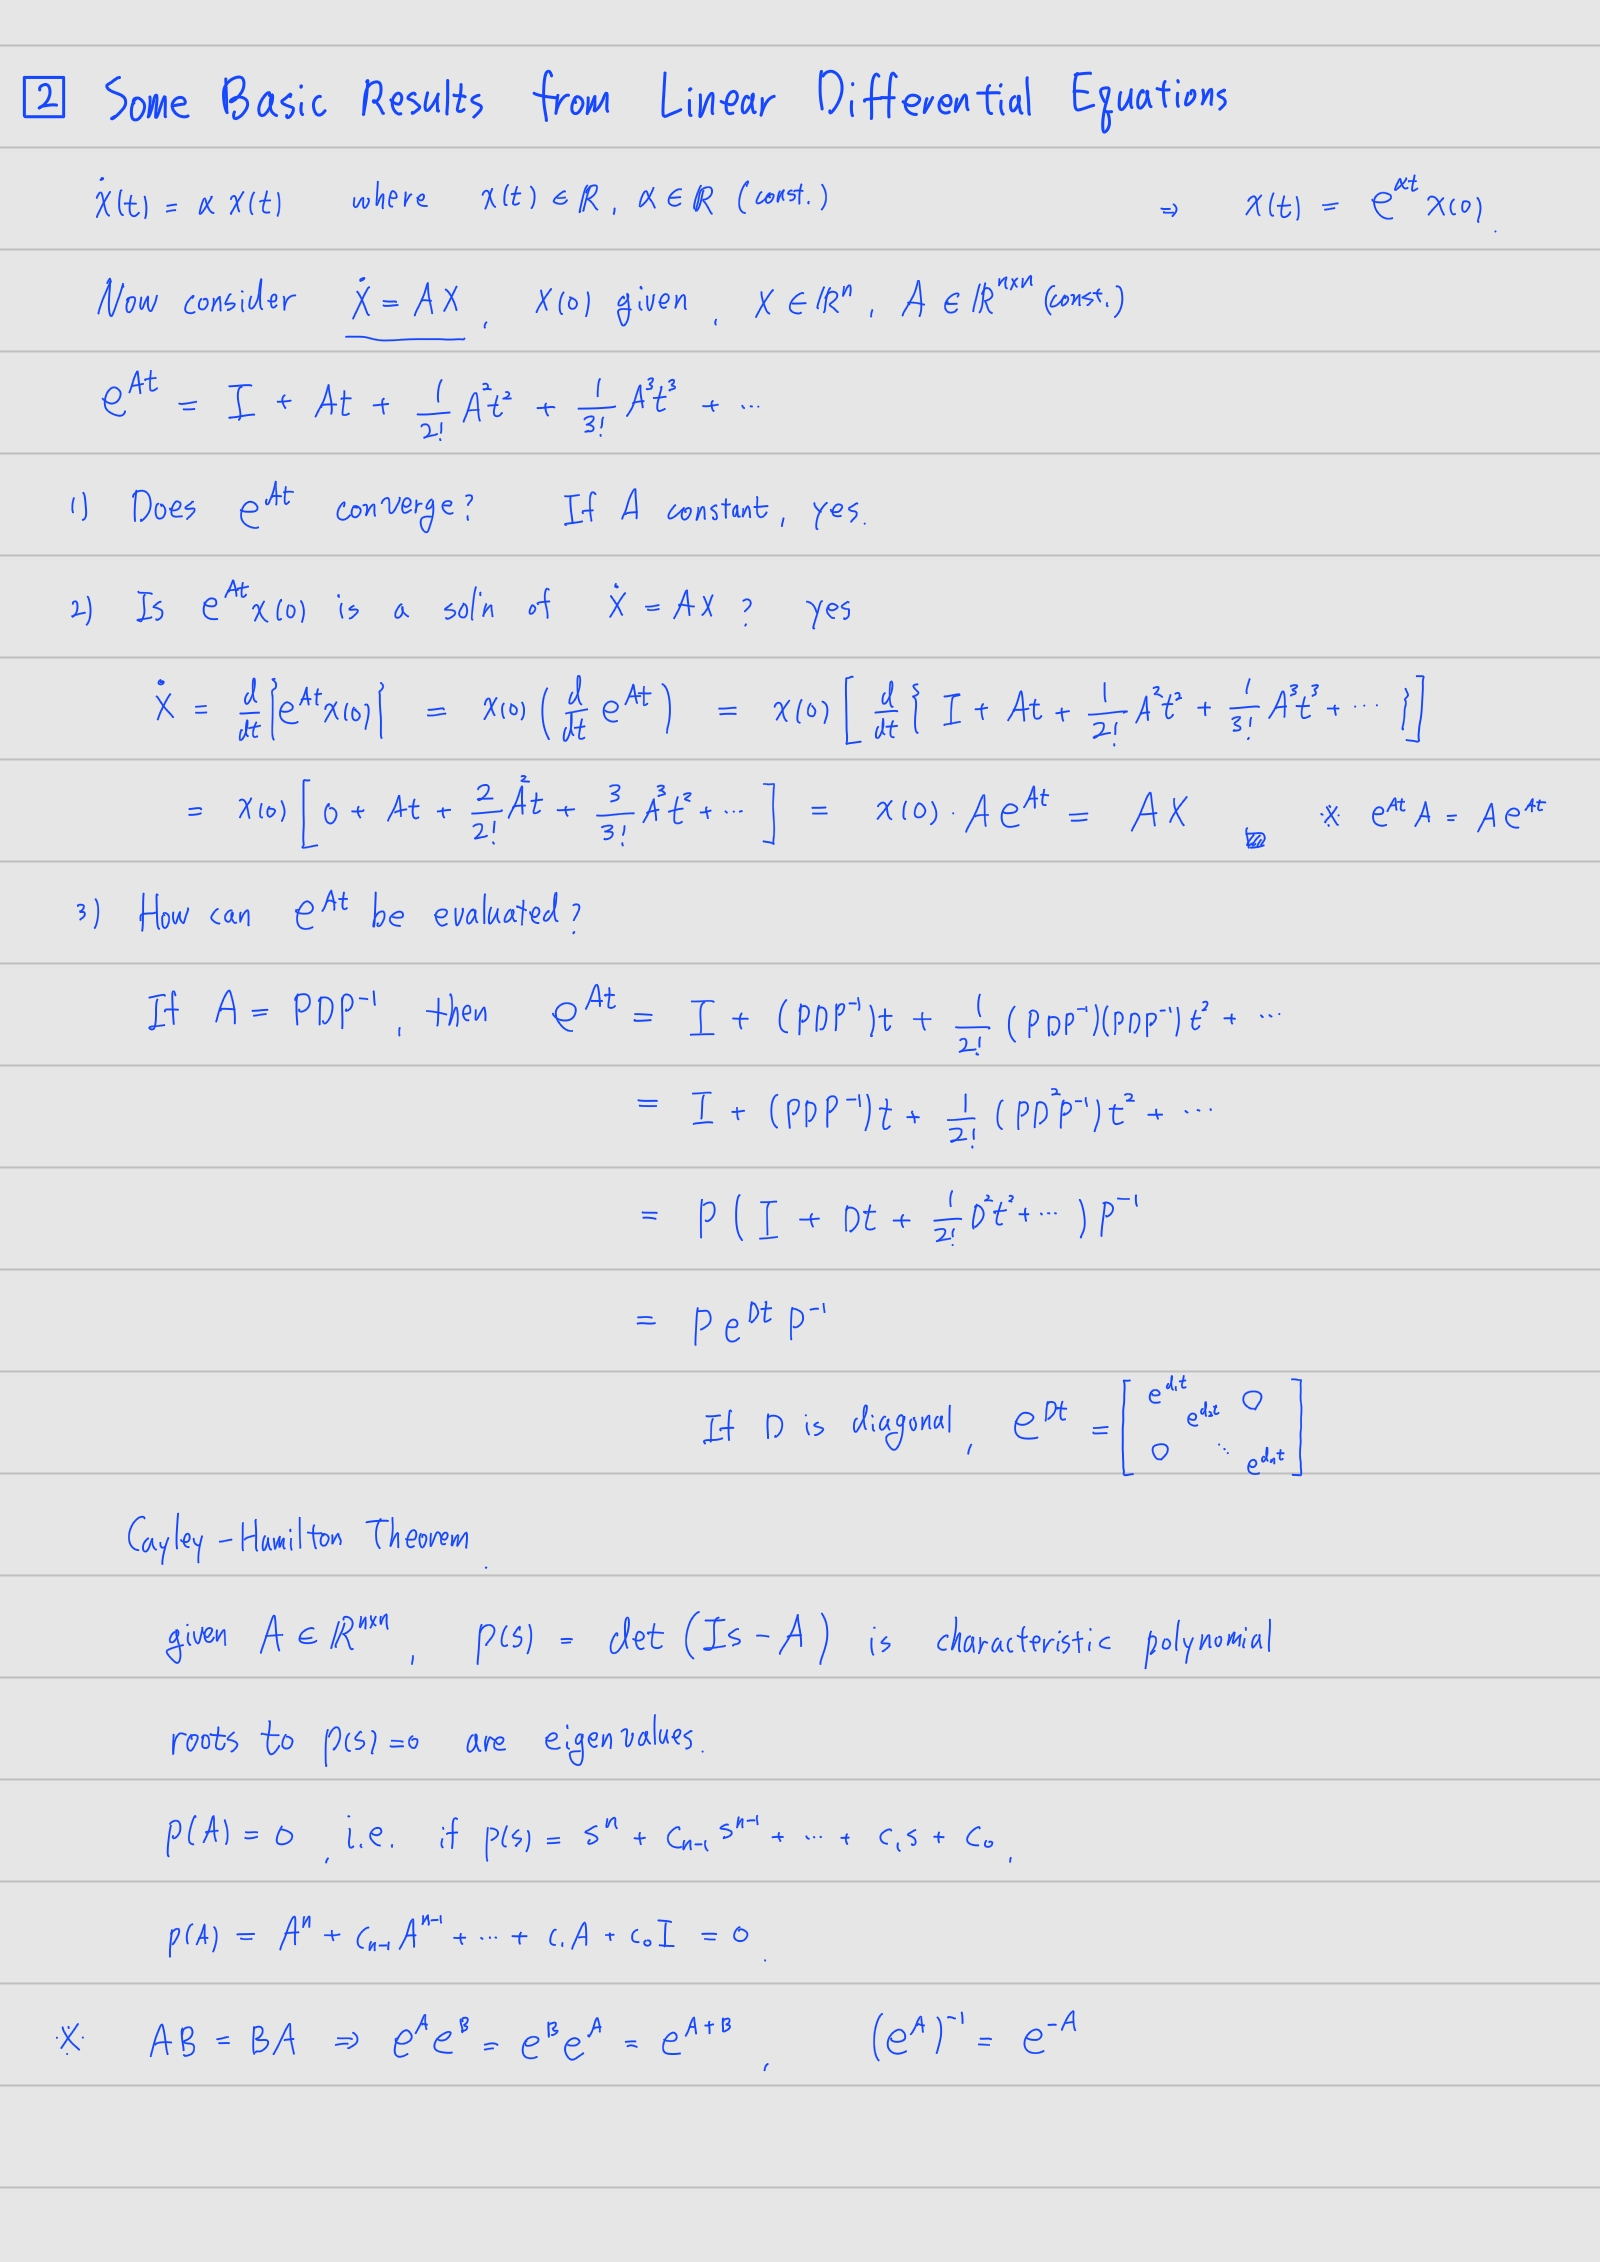 2 Some Basic Results from Linear Differential Equations
ẋ(t) = α x(t) where x(t) ∈ ℝ, α ∈ ℝ (const.) ⇒ x(t) = e^{αt} x(0).
Now consider Ẋ = AX, X(0) given, X ∈ ℝⁿ, A ∈ ℝ^{n×n} (const.)
e^{At} = I + At + 1/2! A²t² + 1/3! A³t³ + ⋯
1) Does e^{At} converge? If A constant, yes.
2) Is e^{At} x(0) is a sol'n of Ẋ = AX ? yes
Ẋ = d/dt {e^{At} x(0)} = x(0) (d/dt e^{At}) = x(0) [ d/dt { I + At + 1/2! A²t² + 1/3! A³t³ + ⋯ } ]
= x(0) [ 0 + At + 2/2! A²t + 3/3! A³t² + ⋯ ] = x(0) · A e^{At} = AX ※ e^{At} A = A e^{At}
3) How can e^{At} be evaluated?
If A = PDP⁻¹, then e^{At} = I + (PDP⁻¹)t + 1/2! (PDP⁻¹)(PDP⁻¹) t² + ⋯
= I + (PDP⁻¹)t + 1/2! (PD²P⁻¹) t² + ⋯
= P ( I + Dt + 1/2! D²t² + ⋯ ) P⁻¹
= P e^{Dt} P⁻¹
If D is diagonal, e^{Dt} = [ e^{d₁t} e^{d₂t} 0 0 ⋱ e^{dₙt} ]
Cayley-Hamilton Theorem.
given A ∈ ℝ^{n×n}, p(s) = det (Is - A) is characteristic polynomial
roots to p(s)=0 are eigenvalues.
p(A) = 0, i.e. if p(s) = sⁿ + c_{n-1} s^{n-1} + ⋯ + c₁s + c₀,
p(A) = Aⁿ + c_{n-1} A^{n-1} + ⋯ + c₁A + c₀I = 0.
※ AB = BA ⇒ e^A e^B = e^B e^A = e^{A+B}, (e^A)⁻¹ = e^{-A}